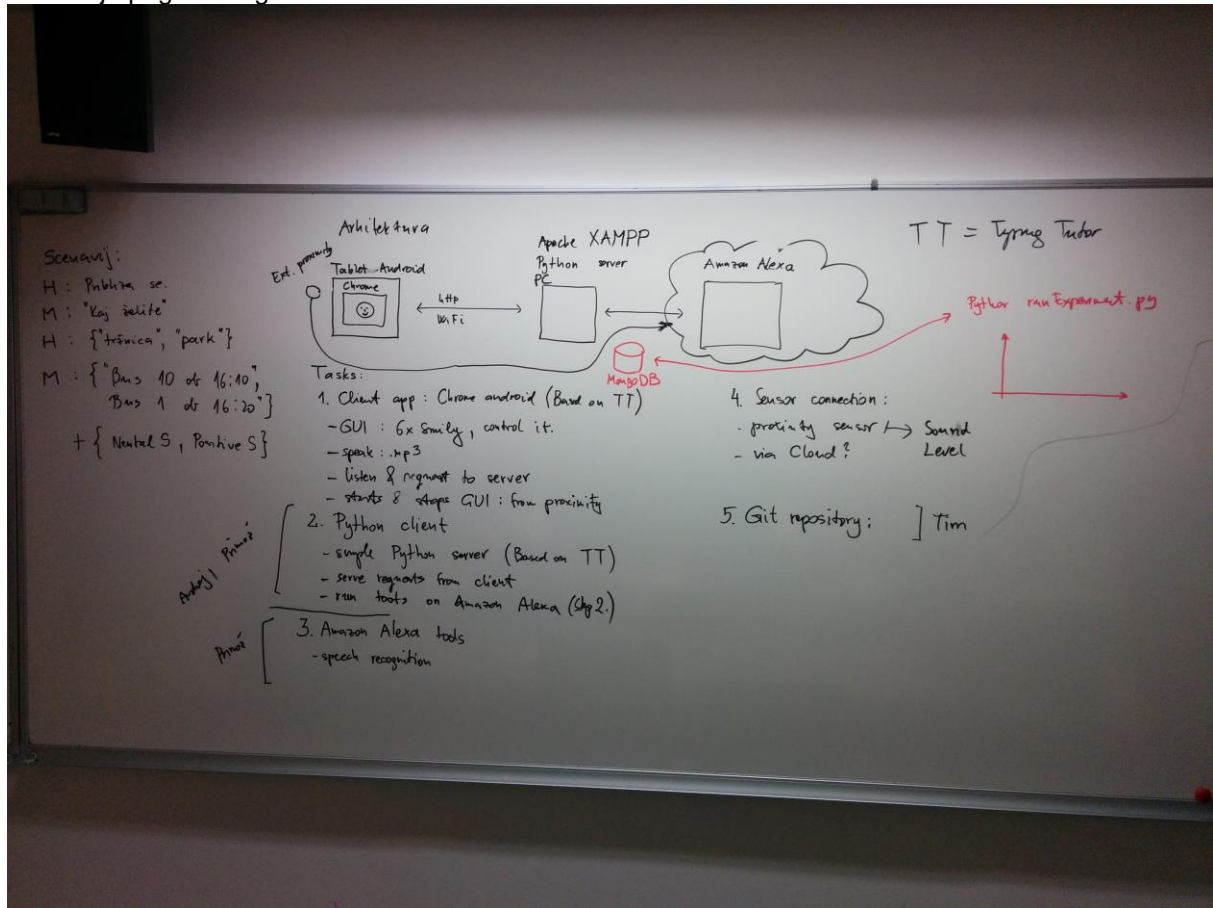 Scenarij:
H: Približa se.
M: "Kaj želite"
H: {"tržnica", "park"}
M: {"Bus 10 ob 16:10",
Bus 1 ob 16:20"}
+ { Neutral S, Positive S}
Arhitektura
Ext. proximity
Tablet Android
Chrome
http
WiFi
Apache XAMPP
Python server
PC
Amazon Alexa
MongoDB
TT = Typing Tutor
Python runExperiment.py
Tasks:
1. Client app: Chrome android (Based on TT)
- GUI: 6x Smily, control it.
- speak: .mp3
- listen & request to server
- starts & stops GUI: from proximity
Andrej, Primož
2. Python client
- simple Python server (Based on TT)
- serve requests from client
- run tools on Amazon Alexa (Step 2.)
Primož
3. Amazon Alexa tools
- speech recognition
4. Sensor connection:
- proximity sensor ↦ Sound
Level
- via Cloud?
5. Git repository: ] Tim